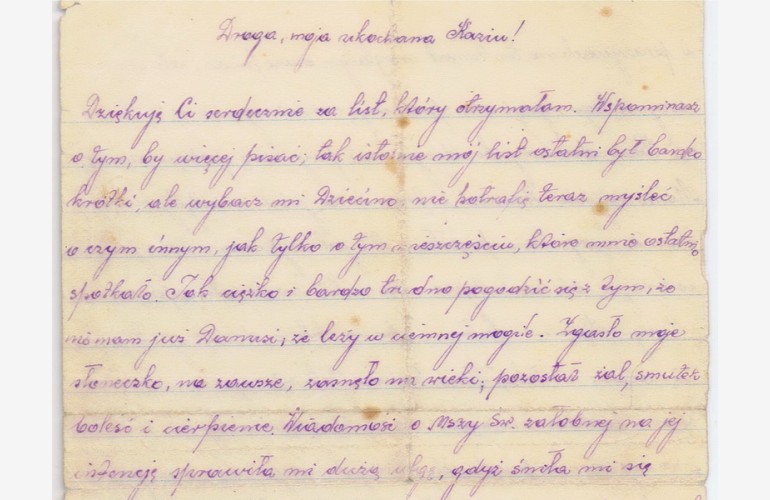 Droga, moja ukochana Kaziu!
Dziękuję Ci serdecznie za list, który otrzymałam. Wspominasz
o tym, by więcej pisać; tak istotnie mój list ostatni był bardzo
krótki, ale wybacz mi Dziecino nie potrafię teraz myśleć
o czym innym, jak tylko o tym nieszczęściu, które mnie ostatnio
spotkało. Tak ciężko i bardzo trudno pogodzić się z tym, że
nie mam już Danusi, że leży w ciemnej mogile. Zgasło moje
słoneczko, na zawsze, zasnęło na wieki; pozostał żal, smutek
boleść i cierpienie. Wiadomość o Mszy Św. żałobnej na jej
intencję sprawiła mi dużą ulgę, gdyż śniła mi się